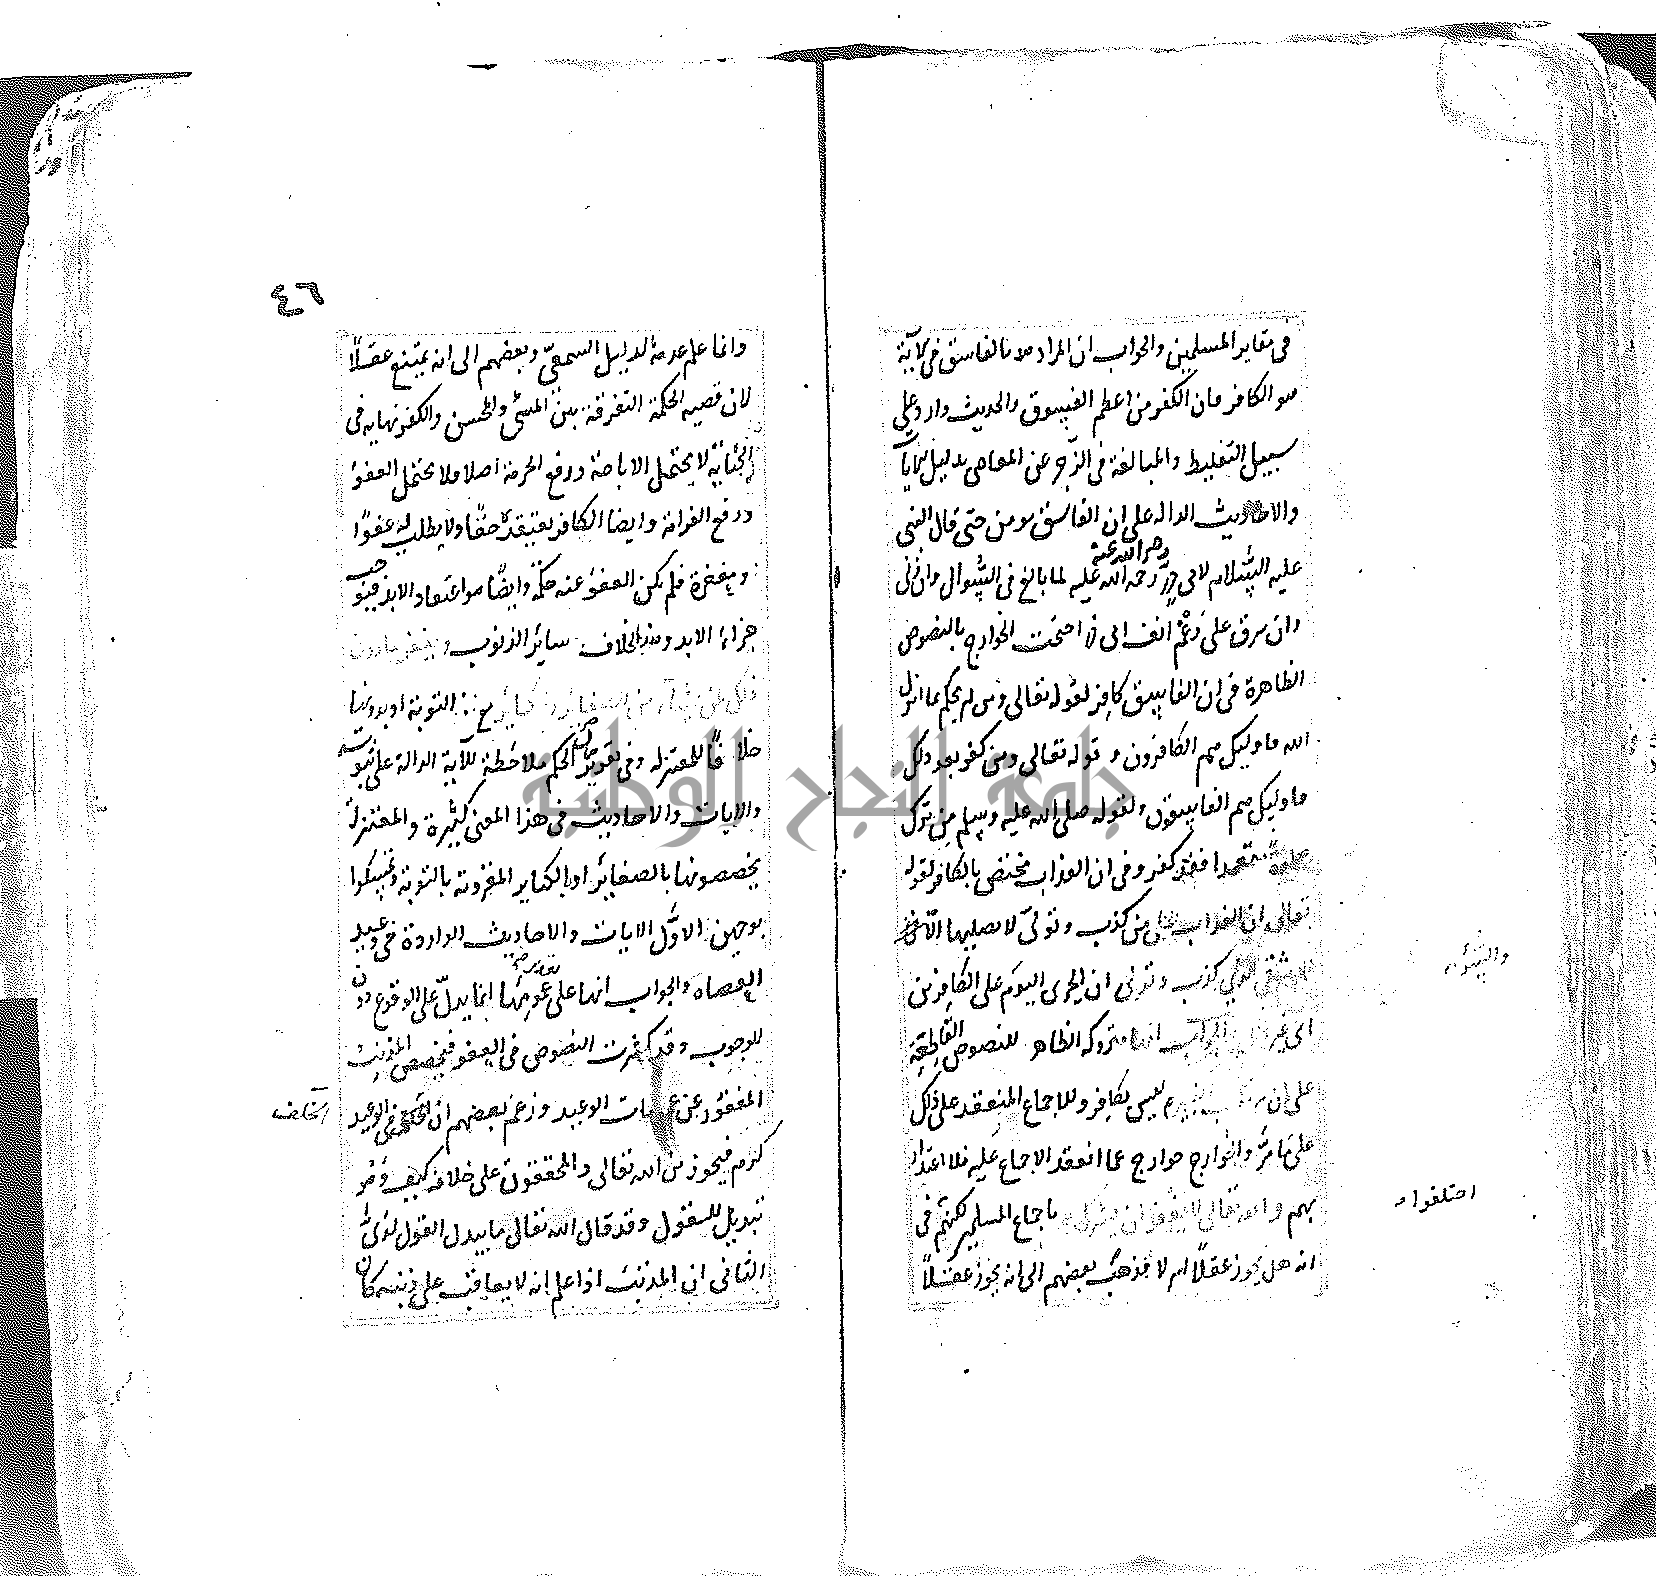 في مقابر المسلمين والجواب ان المراد بالفاسق في الآية
هو الكافر فان الكفر من اعظم الفسوق والحديث وارد على
سبيل التغليظ والمبالغة في الزجر عن المعاصي بدليل الآيات
والاحاديث الدالة على ان الفاسق مومن حتى قال النبي
عليه السلام لابي ذر رحمة الله عليه لما بالغ في السوال وان زنى
رضي الله عنه
وان سرق على رغم انف ابي ذر احتجت الخوارج بالنصوص
الظاهرة في ان الفاسق كافر لقوله تعالى ومن لم يحكم بما انزل
الله فاوليك هم الكافرون و قوله تعالى ومن كفر بعد ذلك
فاوليك هم الفاسقون ولقوله صلى الله عليه وسلم من ترك
صلوة متعمدا فقد كفر وفي ان العذاب مختص بالكافر لقوله
تعالى ان العذاب على من كذب وتولى لا يصليها الا
الاشقى الذي كذب وتولى ان الخزي اليوم على الكافرين
الى غير الجواب انها متروكة الظاهر للنصوص القاطعة
على ان ليس بكافر وللاجماع المنعقد على ذلك
على ما مر والخوارج خوارج عما انعقد الاجماع عليه فلا اعتداد
بهم والله تعالى لا يغفر ان يشرك به باجماع المسلمين لكنهم في
انه هل يجوز عقلاً ام لا فذهب بعضهم الى انه يجوز عقلاً
اختلفوا
٤٦
وانما علم عدمه الدليل السمعي وبعضهم الى انه يمتنع عقلاً
لان قضيه الحكمة التفرقة بين المسئ والمحسن والكفر نهايه في
الجناية لا يحتمل الاباحة ورفع الحرمة اصلا ولا يحتمل العفو
ورفع الغرامة وايضا الكافر يعتقده حقا ولا يطلب له عفوًا
ومغفرة فلم يكن العفو عنه حكمة وايضًا هو اعتقاد الابد فيوجب
جزاء الابد وهذا بخلاف سائر الذنوب ويغفر ما دون
ذلك لمن يشآء من الصغائر والكبائر مع التوبة او بدونها
خلافًا للمعتزله وفي تقرير الحكم ملاحظة للآية الدالة على ثبوته
والايات والاحاديث في هذا المعنى كثيرة والمعتزلة
يخصصونها بالصغائر او بالكباير المقرونة بالتوبة وتمسكوا
بوجهين الاول الايات والاحاديث الواردة في وعيد
العصاه والجواب انها على عمومها انما يدل على الوقوع دون
تقدير
للوجوب وقد كثرت النصوص في العفو فيخصص المذنب
المغفور عن عمومات الوعيد وزعم بعضهم ان الخلف في الوعيد
الخلف
كرم فيجوز من الله تعالى والمحققون على خلافه كيف وهو
تبديل للقول وقد قال الله تعالى ما يبدل القول لدي
الثاني ان المذنب اذا علم انه لا يعاقب على ذنبه كان
جامعة النجاح الوطنية